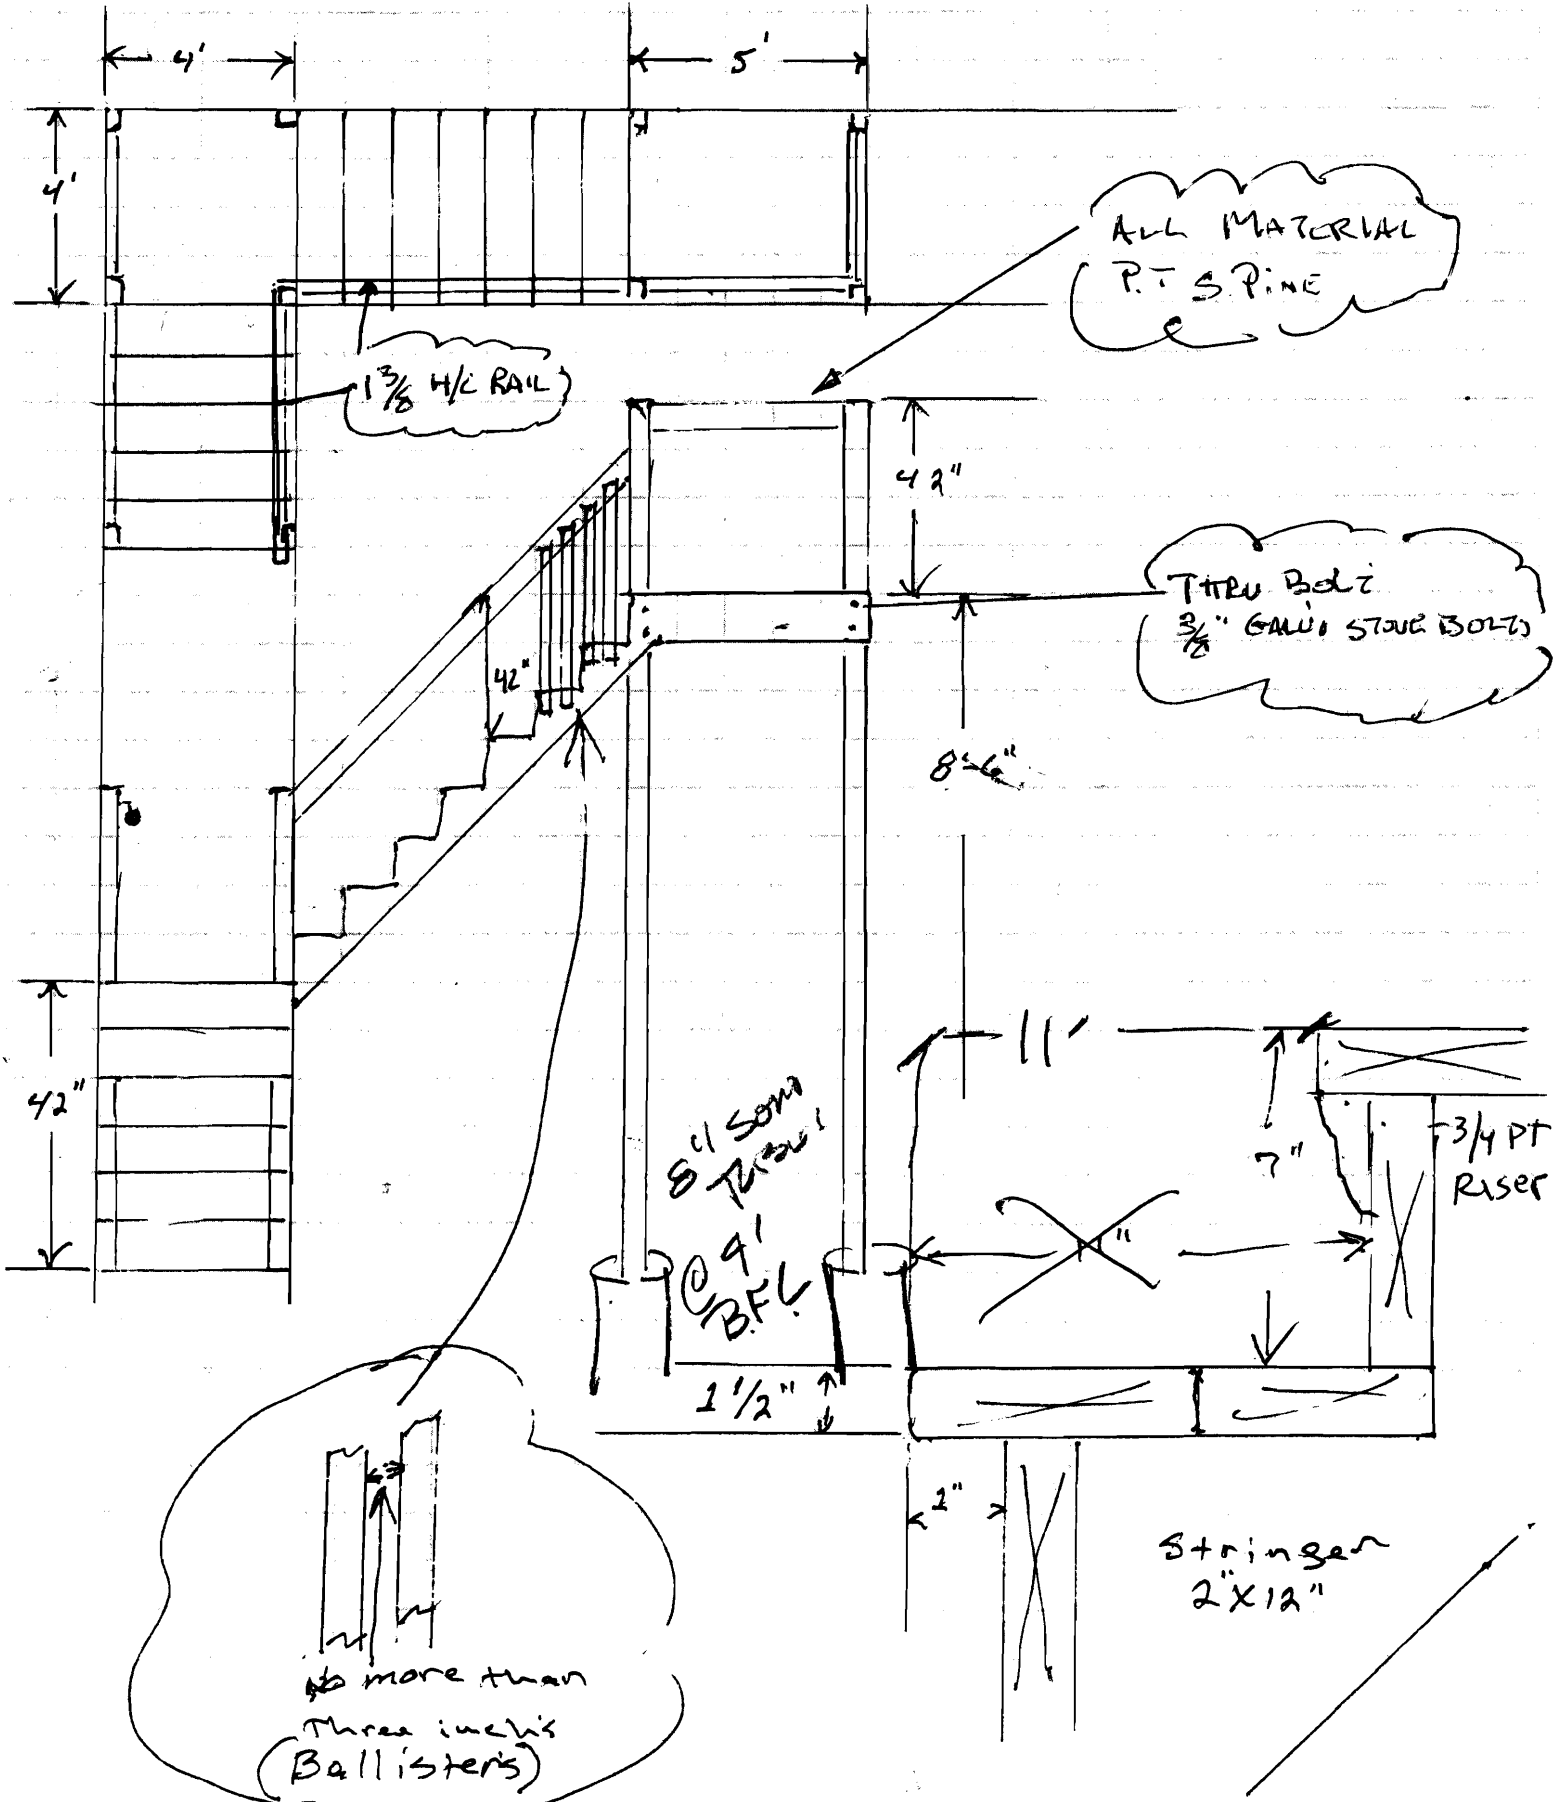 4'
5'
4'
ALL MATERIAL
P.T S. PINE
1 3/8 H/C RAIL
42"
THRU BOLT
3/8" GALV. STOVE BOLTS
42"
8'-6"
11'
42"
7"
3/4 PT
Riser
8" SONO
@ 4'
B.F.L.
1 1/2"
1"
Stringer
2"X12"
No more than
Three inch's
(Ballister's)